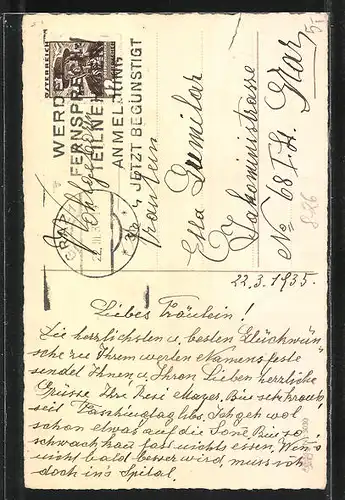 ÖSTERREICH
WERDE
FERNSPRECH
TEILNEHMER
ANMELDUNG
JETZT BEGÜNSTIGT
GRAZ
22.III.35
Wohlgeboren
Fräulein
Ella Gumilar
Jakoministrasse
No 68 I. St. Graz
22.3.1935.
Liebes Fräulein!
Die herzlichsten u. besten Glückwün-
sche zu Ihrem werten Namensfeste
sendet Ihnen u. Ihren Lieben herzliche
Grüsse, Ihre Resi Mayer. Bin sehr krank
seit Faschingtag Ich geh wol
schon etwas auf die Sone. Bin so
schwach kan fast nichts essen. Wen's
nicht bald besser wird, muss ich
doch in's Spital.